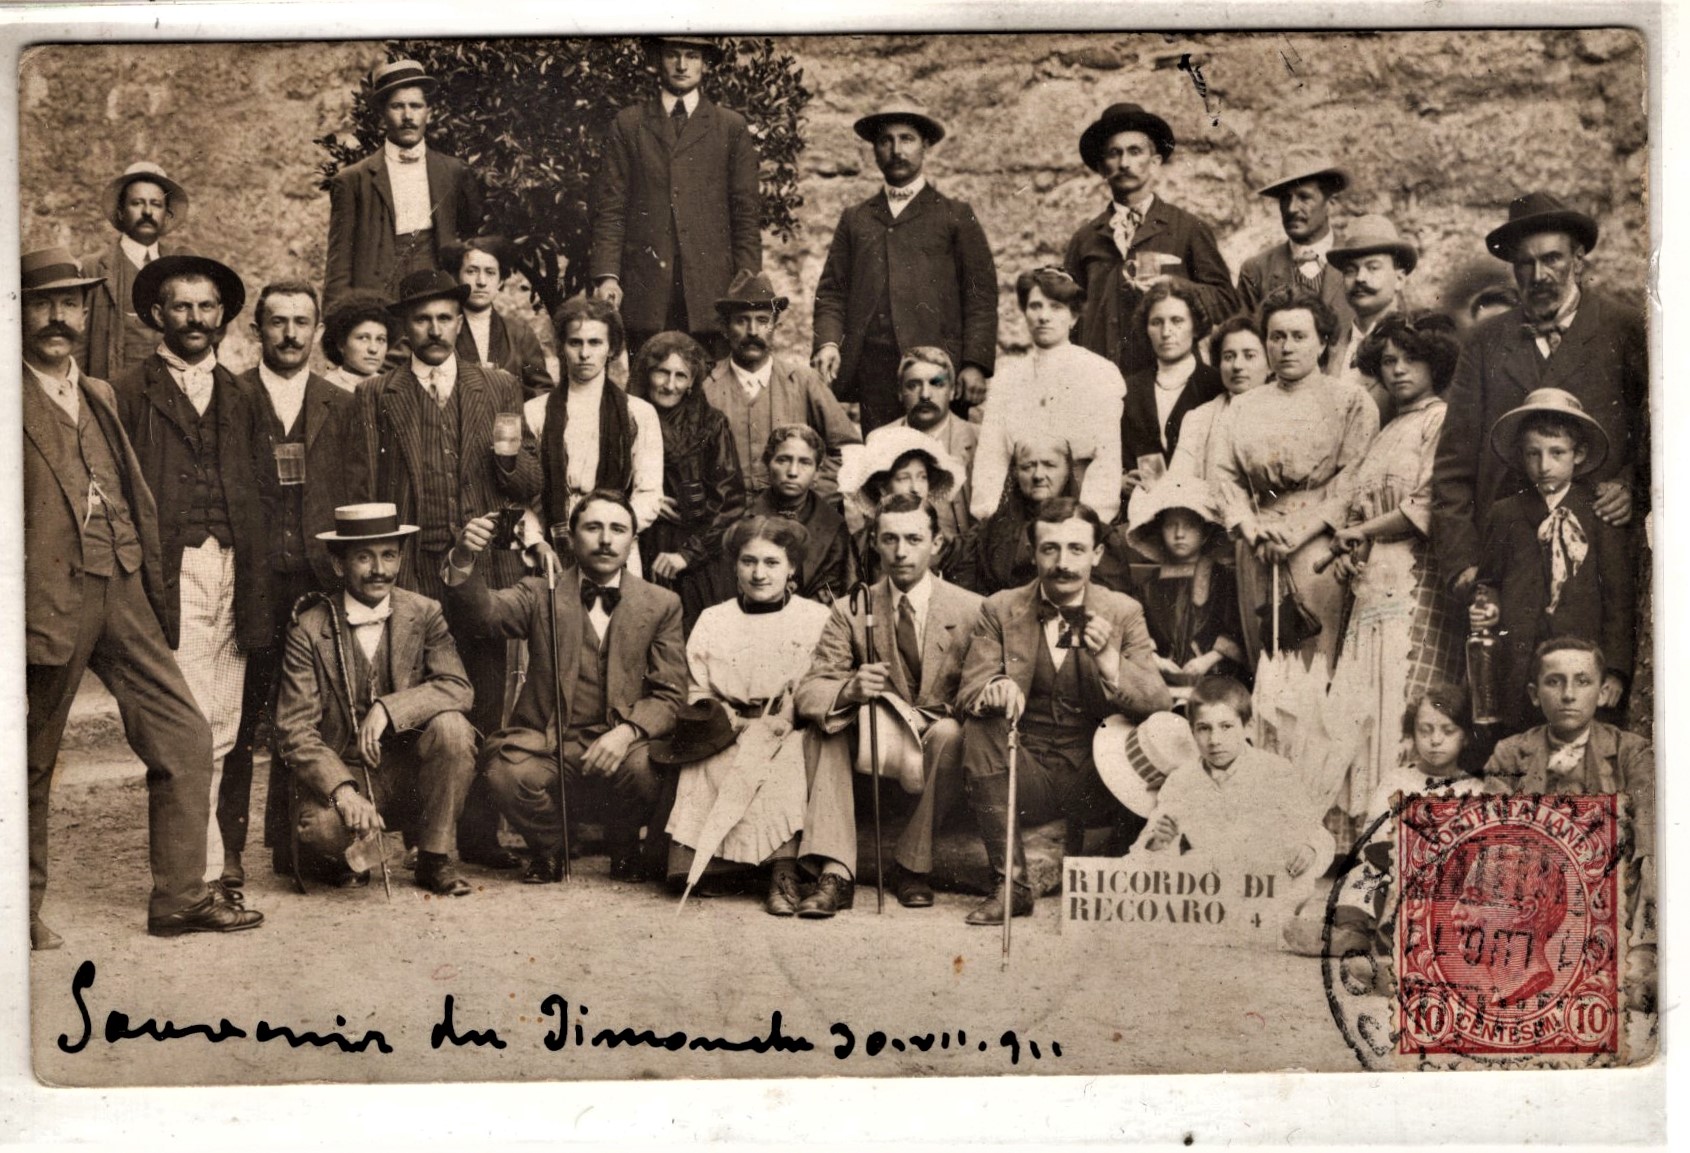 RICORDO DI
RECOARO 4
Souvenir du Dimanche 30.VII.911
POSTE ITALIANE
10 CENTESIMI 10